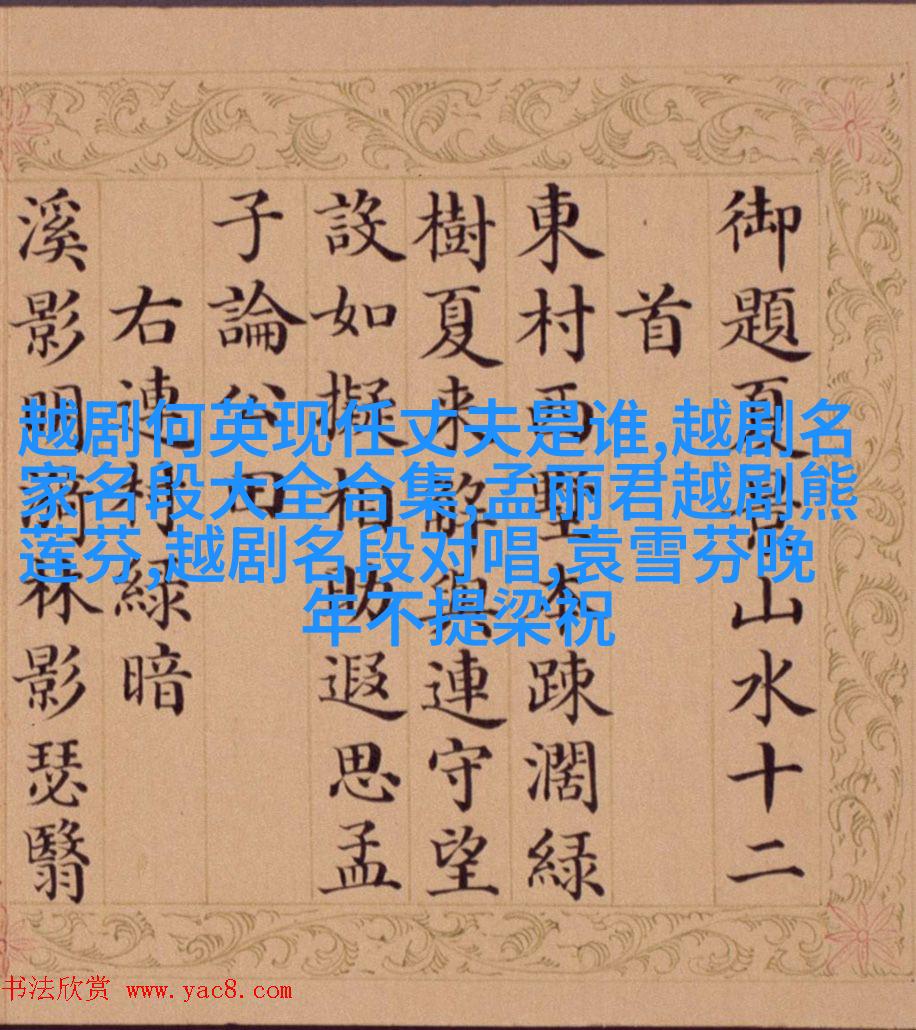 御題夏山水十二
首
東村西墅本疎濶緑
樹夏来解與連守望
設如擬相助遐思孟
子論公田
右連村緑暗
溪影明林影瑟翳
越剧何英现任丈夫是谁,越剧名
家名段大全合集,孟丽君越剧熊
莲芬,越剧名段对唱,袁雪芬晚
年不提梁祝
书法欣赏 www.yac8.com